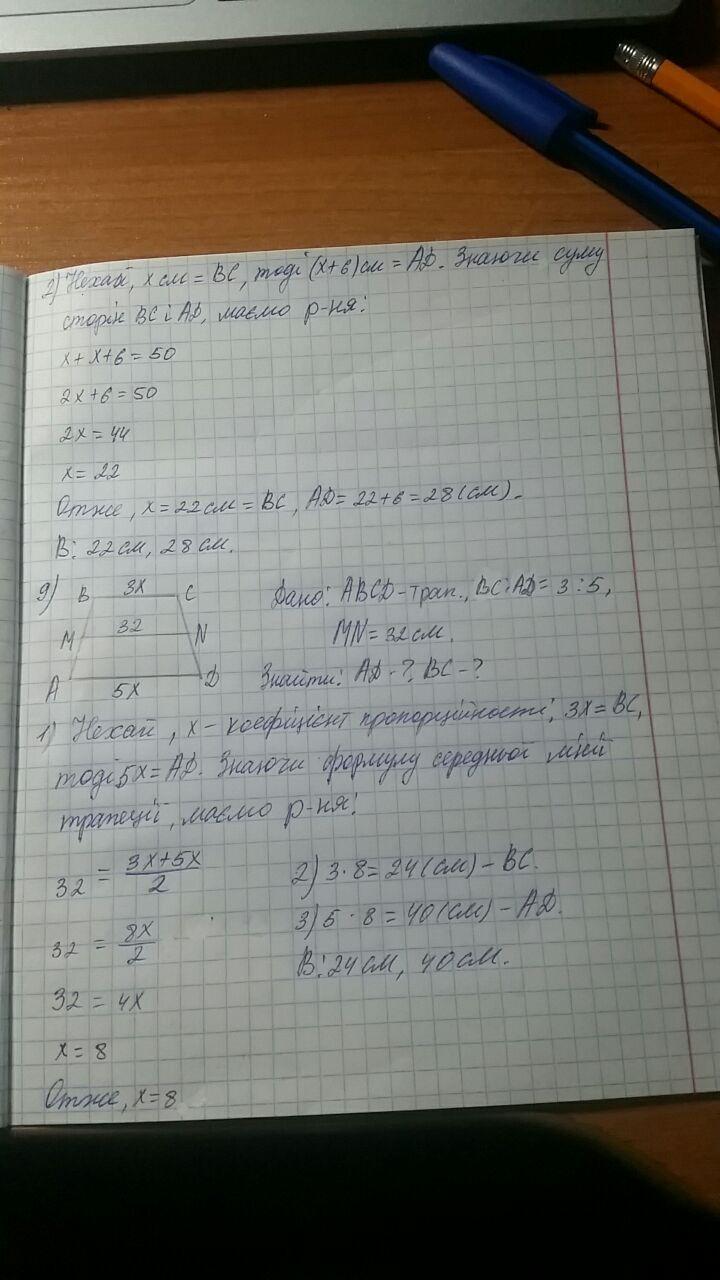 2) Нехай, x см = BC, тоді (x+6) см = AD. Знаючи суму
сторін BC і AD, маємо р-ня:
x + x + 6 = 50
2x + 6 = 50
2x = 44
x = 22
Отже, x = 22 см = BC, AD = 22 + 6 = 28 (см).
В: 22 см, 28 см.
9) B 3x C
M 32 N
A 5x D
Дано: ABCD - трап., BC:AD = 3:5,
MN = 32 см.
Знайти: AD - ?, BC - ?
1) Нехай, x - коефіцієнт пропорційності, 3x = BC,
тоді 5x = AD. Знаючи формулу середньої лінії
трапеції, маємо р-ня:
32 = (3x+5x)/2
32 = 8x/2
32 = 4x
x = 8
Отже, x = 8
2) 3 · 8 = 24 (см) - BC.
3) 5 · 8 = 40 (см) - AD.
В: 24 см, 40 см.